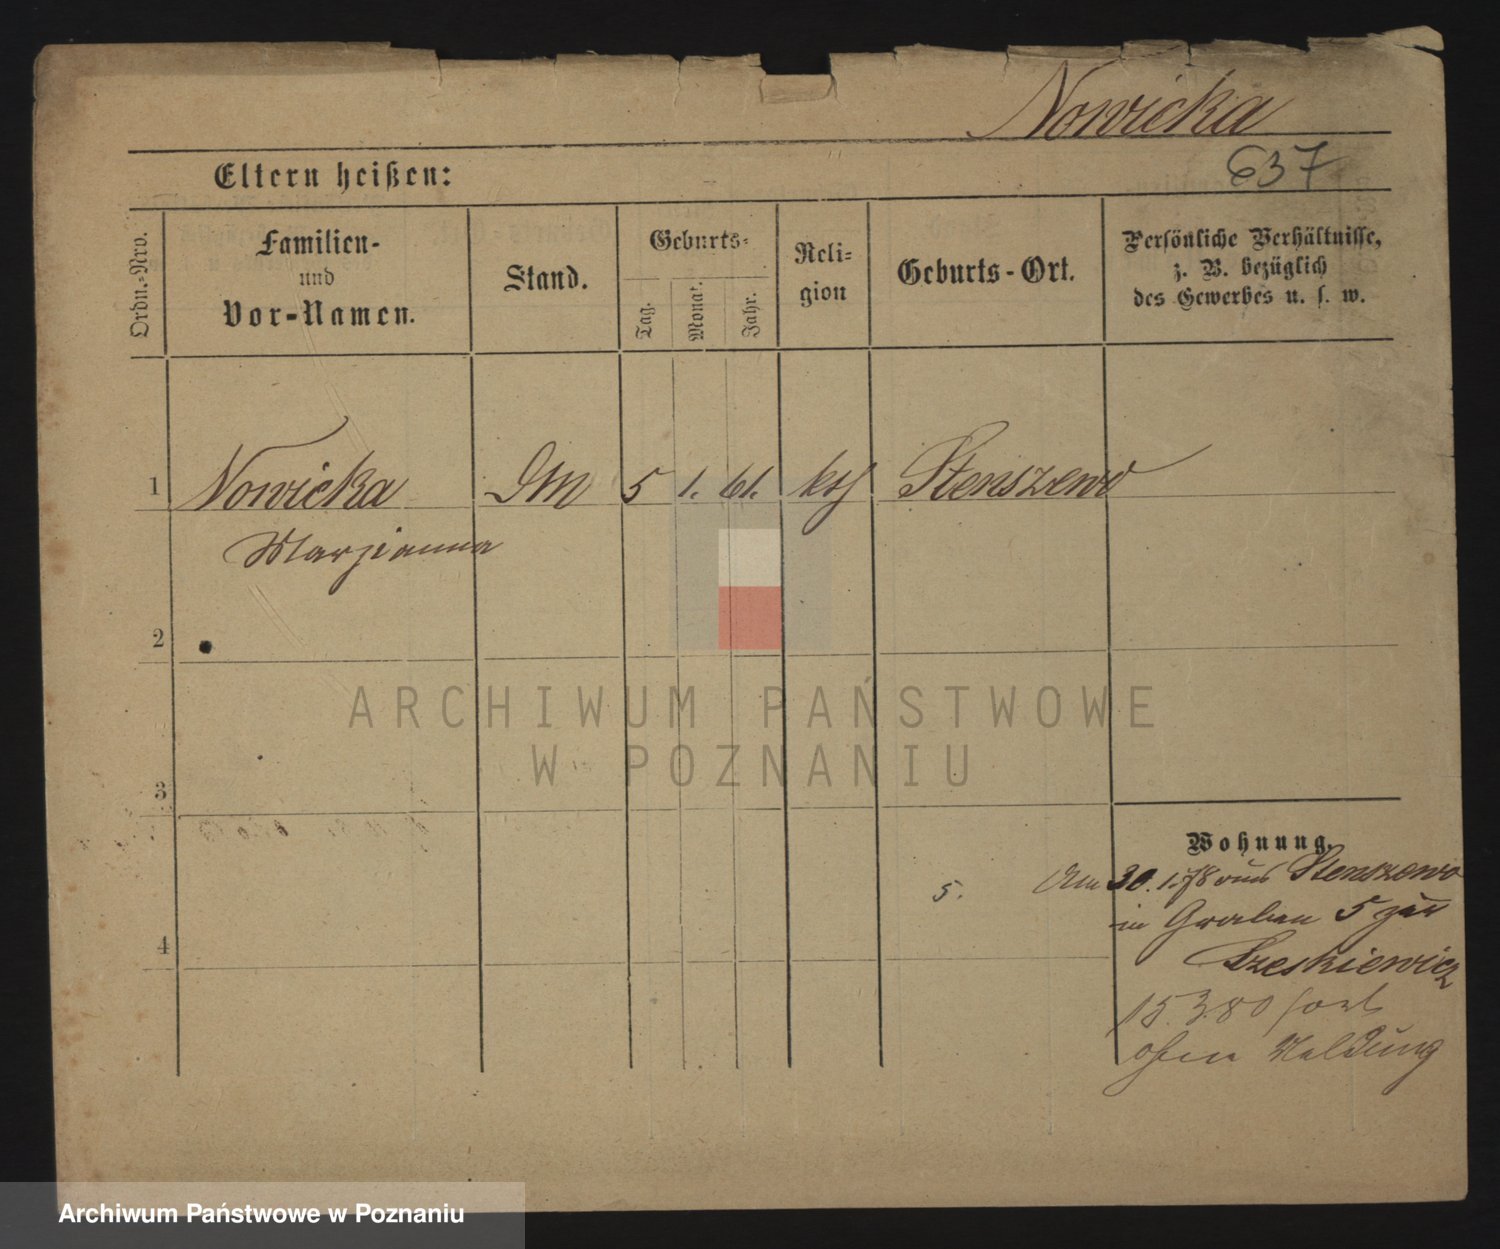 Nowicka
637
Eltern heißen:
Ordn.-Nro.
Familien-
und
Vor-Namen.
Stand.
Geburts-
Tag.
Monat.
Jahr.
Reli-
gion
Geburts-Ort.
Persönliche Verhältnisse,
z. B. bezüglich
des Gewerbes u. s. w.
1 Nowicka DM 5 1. 61. kth Stenszewo
Maryianna
2
3
4
Wohnung.
5. Am 30. 1. 78 aus Stenszewo
in Graben 5 zur
Szeskiewicz
15.3.80 fort
ohne Meldung
ARCHIWUM PAŃSTWOWE
W POZNANIU
Archiwum Państwowe w Poznaniu